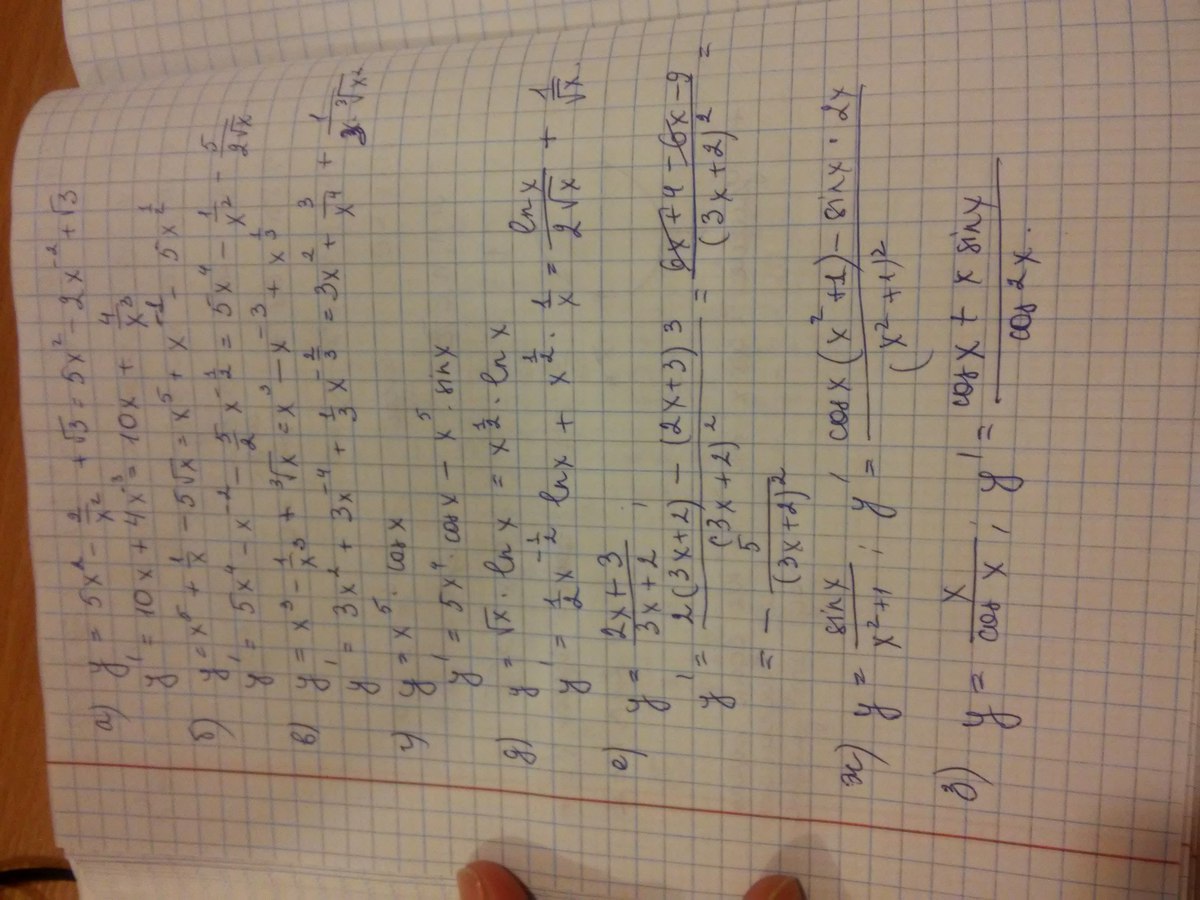 а) y = 5x² - 2/x² + √3 = 5x² - 2x⁻² + √3
y' = 10x + 4x⁻³ = 10x + 4/x³
б) y = x⁵ + 1/x - 5√x = x⁵ + x⁻¹ - 5x^(1/2)
y' = 5x⁴ - x⁻² - 5/2 x^(-1/2) = 5x⁴ - 1/x² - 5/(2√x)
в) y = x³ - 1/x³ + ∛x = x³ - x⁻³ + x^(1/3)
y' = 3x² + 3x⁻⁴ + 1/3 x^(-2/3) = 3x² + 3/x⁴ + 1/(3·∛x²)
г) y = x⁵ · cos x
y' = 5x⁴ · cos x - x⁵ · sin x
д) y = √x · ln x = x^(1/2) · ln x
y' = 1/2 x^(-1/2) ln x + x^(1/2) · 1/x = ln x/(2√x) + 1/√x.
е) y = (2x+3)/(3x+2) ;
y' = (2(3x+2) - (2x+3)3)/(3x+2)² = (6x+4-6x-9)/(3x+2)² =
= - 5/(3x+2)²
ж) y = sin x/(x²+1) ; y' = (cos x (x²+1) - sin x · 2x)/(x²+1)²
з) y = x/cos x ; y' = (cos x + x sin x)/cos²x.